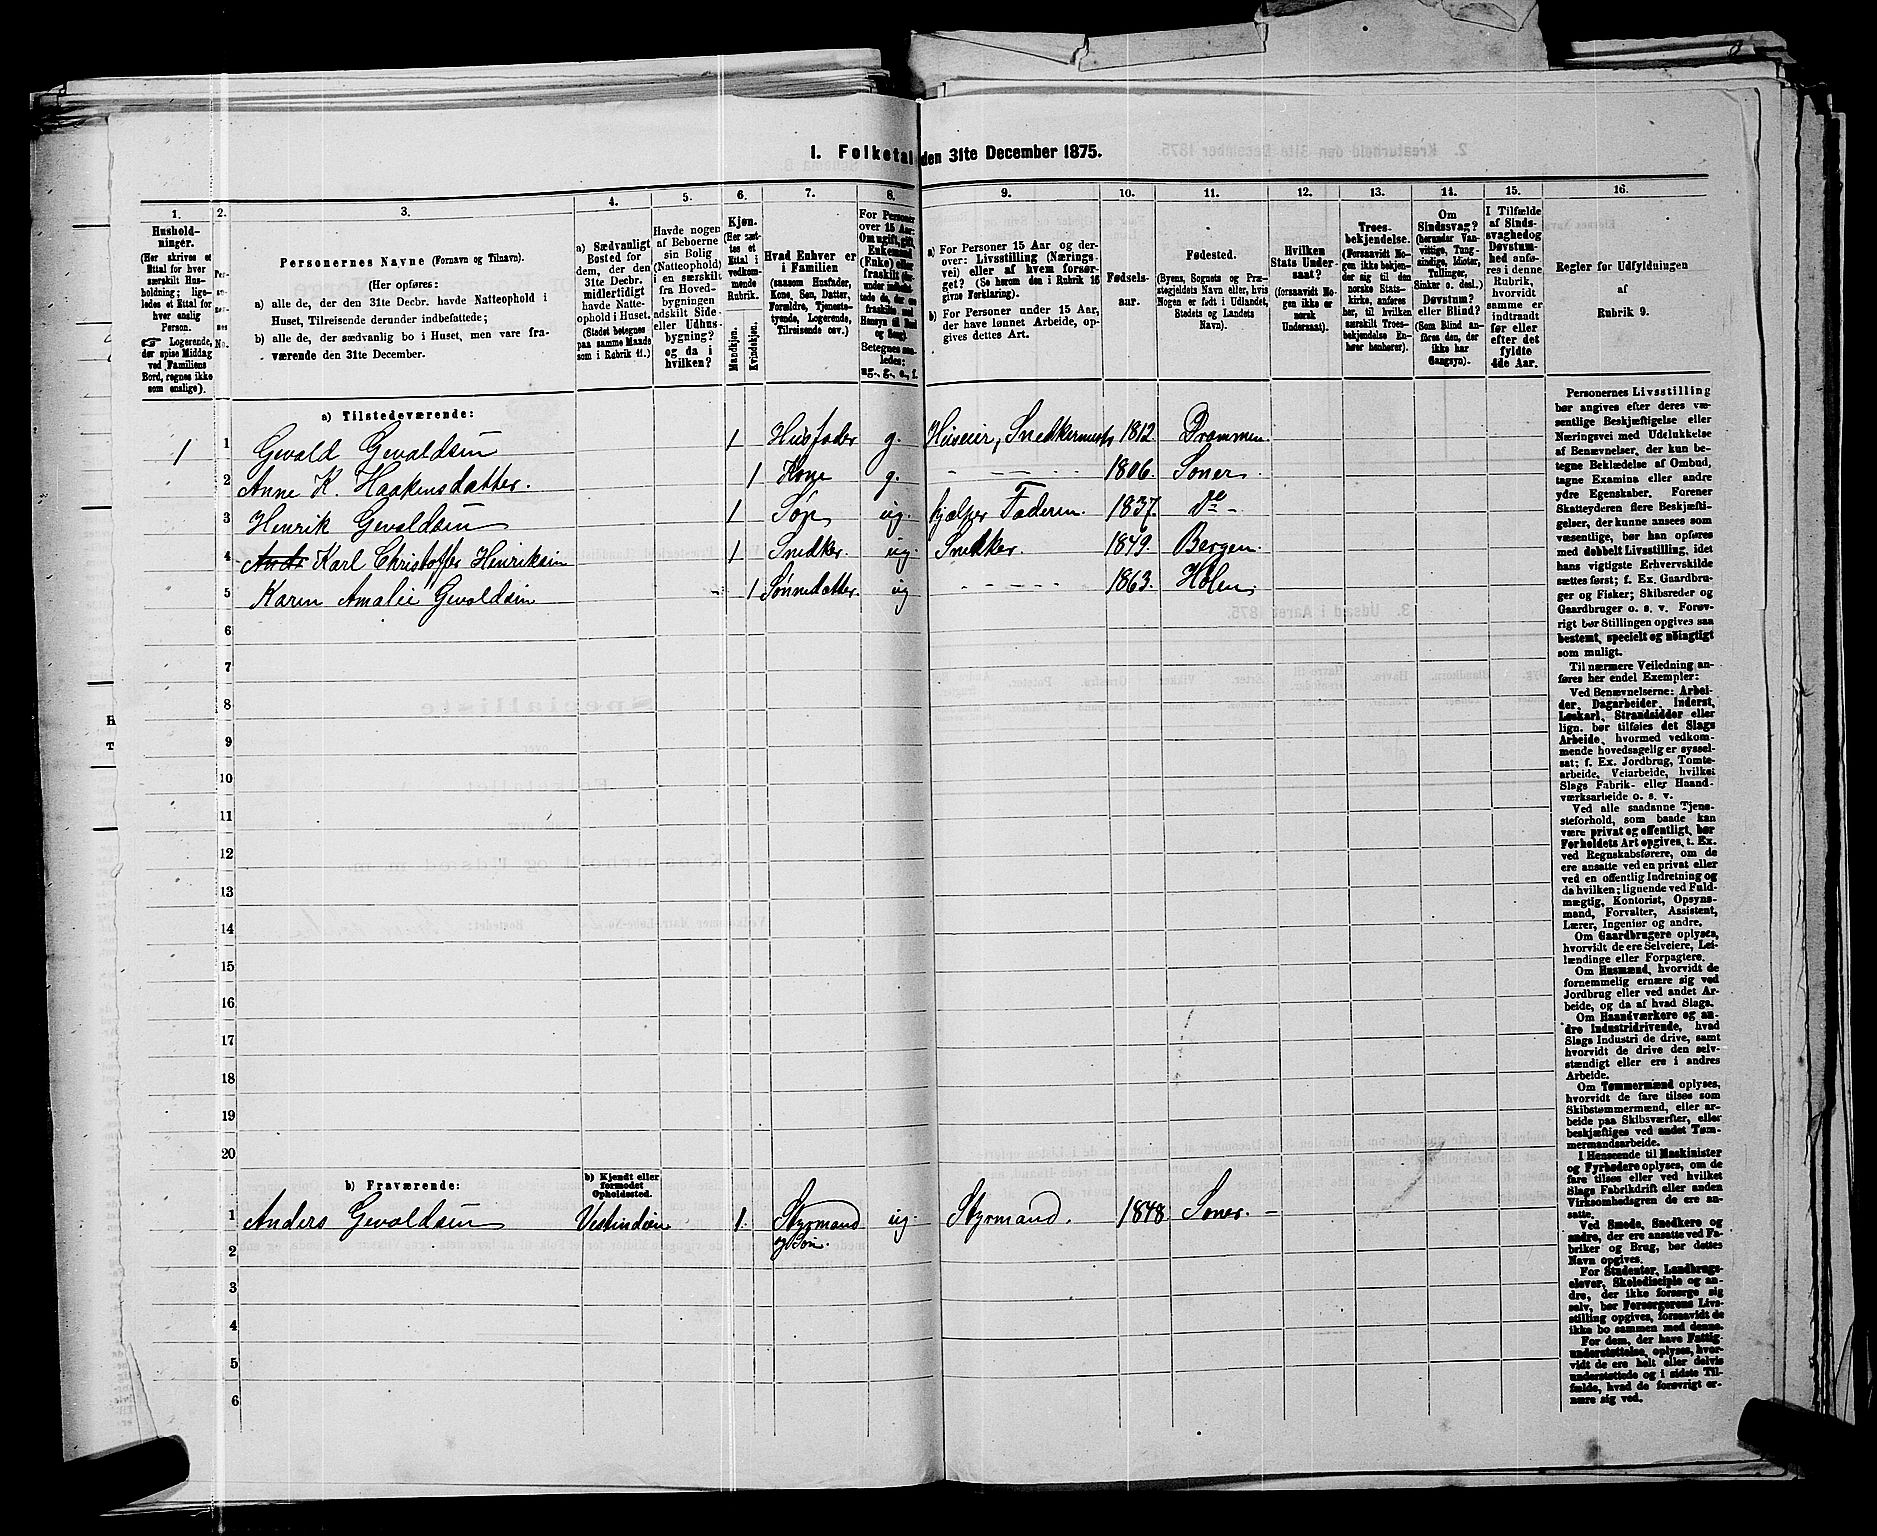 1. Folketal den 31te December 1875.
1. 2. 3. 4. 5. 6. 7. 8. 9. 10. 11. 12. 13. 14. 15. 16.
Hushold-
ninger.
(Her skrives et
Ettal for hver
særskilt Hus-
holdning; lige-
ledes et Ettal for
hver enslig
Person.
☞ Logerende,
der spise Middag
ved Familiens
Bord, regnes ikke
som enslige).
Per-
so-
ner-
nes
No.
Personernes Navne (Fornavn og Tilnavn).
(Her opføres:
a) alle de, der den 31te Decbr. havde Natteophold i
Huset, Tilreisende derunder indbefattede;
b) alle de, der sædvanlig bo i Huset, men vare fra-
værende den 31te December.
a) Sædvanligt
Bosted for
dem, der den
31te Decbr.
midlertidigt
havde Natte-
ophold i Huset.
(Stedet betegnes
paa samme Maade
som i Rubrik 11.)
Havde nogen
af Beboerne
sin Bolig
(Natteophold)
i en særskilt
fra Hoved-
bygningen
adskilt Side-
eller Udhus-
bygning?
og da i
hvilken?
Kjøn.
(Her sæt-
tes et
Ettal i
vedkom-
mende
Rubrik.
Mandkjøn.
Kvindekjøn.
Hvad Enhver er
i Familien
(saasom Husfader,
Kone, Søn, Datter,
Forældre, Tjeneste-
tyende, Logerende,
Tilreisende osv.)
For Personer
over 15 Aar:
Om ugift, gift,
Enkemand
(Enke) eller
fraskilt
Betegnes saa-
ledes:
ug., g., e., f.
a) For Personer 15 Aar og der-
over: Livsstilling (Nærings-
vei) eller af hvem forsør-
get? (Se herom den i Rubrik 16
givne Forklaring).
b) For Personer under 15 Aar,
der have lønnet Arbeide, op-
gives dettes Art.
Fødsels-
aar.
Fødested.
(Byens, Sognets og Præ-
stegjeldets Navn eller, hvis
Nogen er født i Udlandet,
Stedets og Landets
Navn).
Hvilken
Stats Under-
saat?
(forsaavidt No-
gen ikke er
norsk
Undersaat).
Troes-
bekjendelse.
(Forsaavidt No-
gen ikke bekjen-
der sig til den
norske Stats-
kirke, anføres
her, til hvilken
særskilt Troes-
bekjendelse En-
hver henhører).
Om
Sindssvag?
(herunder Van-
vittige, Tung-
sindige, Idioter,
Tullinger,
Sinker o. desl.)
Døvstum?
eller Blind?
(Som Blind an-
føres den, der
ikke har
Gangsyn).
I Tilfælde
af Sinds-
svaghed og
Døvstum-
hed anfø-
res i denne
Rubrik,
hvorvidt
samme er
indtraadt
før eller
efter det
fyldte
4de Aar.
Regler for Udfyldningen
af
Rubrik 9.
a) Tilstedeværende:
1 1 Gevald Gevaldsen 1 Husfader g. Huseier, Snedkermester 1812 Drammen
2 Anne K. Haakensdatter. 1 Kone g. - - - - 1806. Soner
3 Henrik Gevaldsen 1 Søn ug. hjælper Faderen. 1837. do -
4 Karl Christoffer Henriksen 1 Snedker. ug. Snedker. 1849. Bergen.
5 Karen Amalie Gevaldsen 1 Sønnedatter. ug - - - - 1863. Holen
6
7
8
9
10
11
12
13
14
15
16
17
18
19
20
b) Fraværende:
b) Kjendt eller
formodet
Opholdssted.
1 Anders Gevaldsen Vestindien 1. Styrmand ug. Styrmand. 1848. Soner. -
og Søn.
2
3
4
5
6
Personernes Livsstilling
bør angives efter deres væ-
sentlige Beskjæftigelse eller
Næringsvei med Udelukkelse
af Benævnelser, der kun be-
tegne Beklædelse af Ombud,
tagne Examina eller andre
ydre Egenskaber. Forener
Skatteyderen flere Beskjæfti-
gelser, der kunne ansees som
væsentlige, bør han opføres
med dobbelt Livsstilling, idet
hans vigtigste Erhvervskilde
sættes først; f. Ex. Gaardbru-
ger og Fisker; Skibsreder og
Gaardbruger o. s. v. Forøv-
rigt bør Stillingen opgives saa
bestemt, specielt og nøiagtigt
som muligt.
Til nærmere Veiledning an-
føres her endel Exempler:
Ved Benævnelserne: Arbei-
der, Dagarbeider, Inderst,
Løskarl, Strandsidder eller
lign. bør tilføies det Slags
Arbeide, hvormed vedkom-
mende hovedsagelig er syssel-
sat; f. Ex. Jordbrug, Tomte-
arbeide, Veiarbeide, hvilket
Slags Fabrik- eller Haand-
værksarbeide o. s. v.
Ved alle saadanne Tjene-
steforhold, som baade kan
være privat og offentligt, bør
Forholdets Art opgives, t. Ex.
ved Regnskabsførere, om de
ere ansatte ved en privat eller
ved en offentlig Indretning og
da hvilken; lignende ved Fuld-
mægtig, Kontorist, Opsyns-
mand, Forvalter, Assistent,
Lærer, Ingeniør og andre.
Om Gaardbrugere oplyses,
hvorvidt de ere Selveiere, Lei-
lændinge eller Forpagtere.
Om Husmænd, hvorvidt de
fornemmelig ernære sig ved
Jordbrug eller ved andet Ar-
beide, og da af hvad Slags.
Om Haandværkere og an-
dre Industridrivende, hvad
Slags Industri de drive, samt
hvorvidt de drive den selv-
stændigt eller ere i andres
Arbeide.
Om Tømmermænd oplyses,
hvorvidt de fare tilsøs som
Skibstømmermænd, eller ar-
beide paa Skibsværfter, eller
beskjæftiges ved andet Tøm-
mermandsarbeide.
I Henseende til Maskinister
og Fyrbødere oplyses, om de
fare tilsøs eller ved hvilket
Slags Fabrikdrift eller anden
Virksomhedsgren de ere an-
satte.
Ved Smede, Snedkere og
andre, der ere ansatte ved Fa-
briker og Brug, bør dettes
Navn opgives.
For Studenter, Landbrugs-
elever, Skoledisciple og an-
dre, der ikke forsørge sig
selv, bør Forsørgerens Livs-
stilling opgives, forsaavidt de
ikke bo sammen med denne.
For dem, der have Fattig-
understøttelse, oplyses, hvor-
vidt de ere helt eller delvis
understøttede og i sidste Til-
fælde, hvad de forøvrigt er-
nære sig ved.